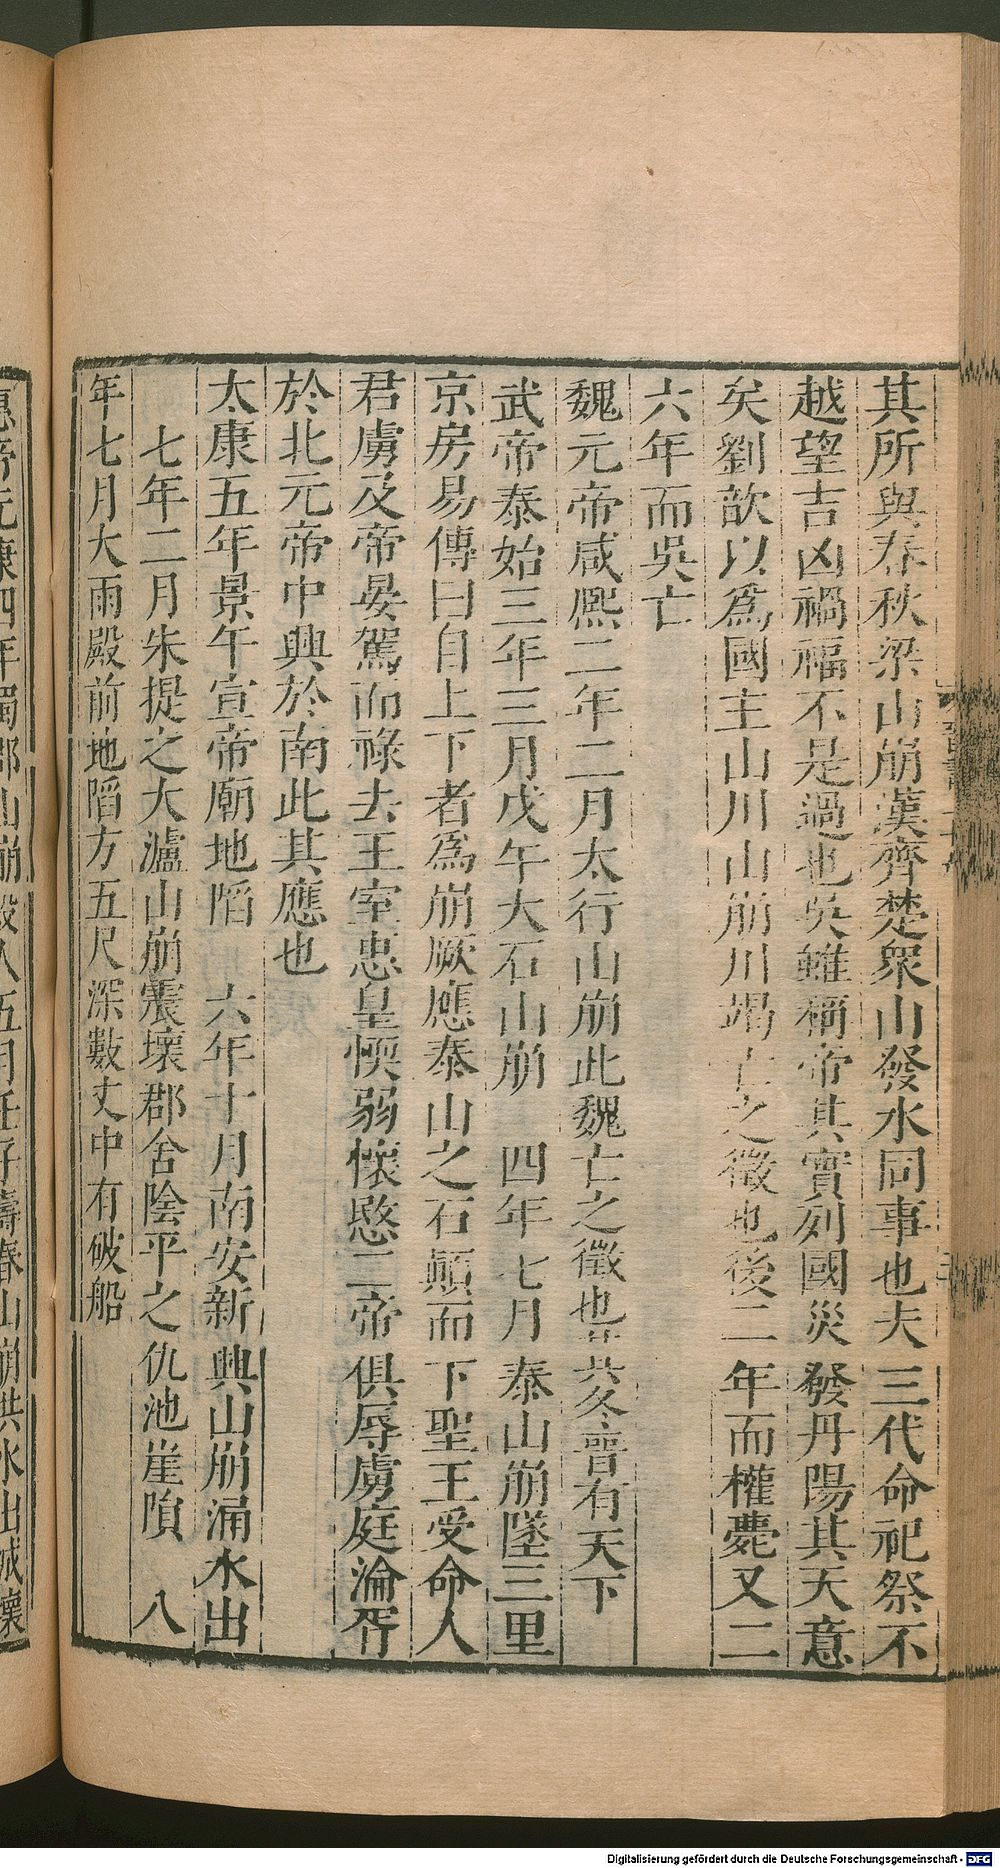 其所與春秋梁山崩漢齊楚衆山發水同事也夫三代命祀祭不
越望吉凶禍福不是過也吳雖稱帝其實列國災發丹陽其天意
矣劉歆以爲國主山川山崩川竭亡之徵也後二年而權薨又二
六年而吳亡
魏元帝咸熙二年二月太行山崩此魏亡之徵也其冬晉有天下
武帝泰始三年三月戊午大石山崩 四年七月泰山崩墜三里
京房易傳曰自上下者爲崩厥應泰山之石顚而下聖王受命人
君虜及帝晏駕而祿去王室惠皇愞弱懷愍二帝俱辱虜庭淪胥
於北元帝中興於南此其應也
太康五年景午宣帝廟地陷 六年十月南安新興山崩涌水出
七年二月朱提之大瀘山崩震壞郡舍陰平之仇池崖隕 八
年七月大雨殿前地陷方五尺深數丈中有破船
惠帝元康四年蜀郡山崩殺人五月壬子壽春山崩洪水出城壞
Digitalisierung gefördert durch die Deutsche Forschungsgemeinschaft - DFG